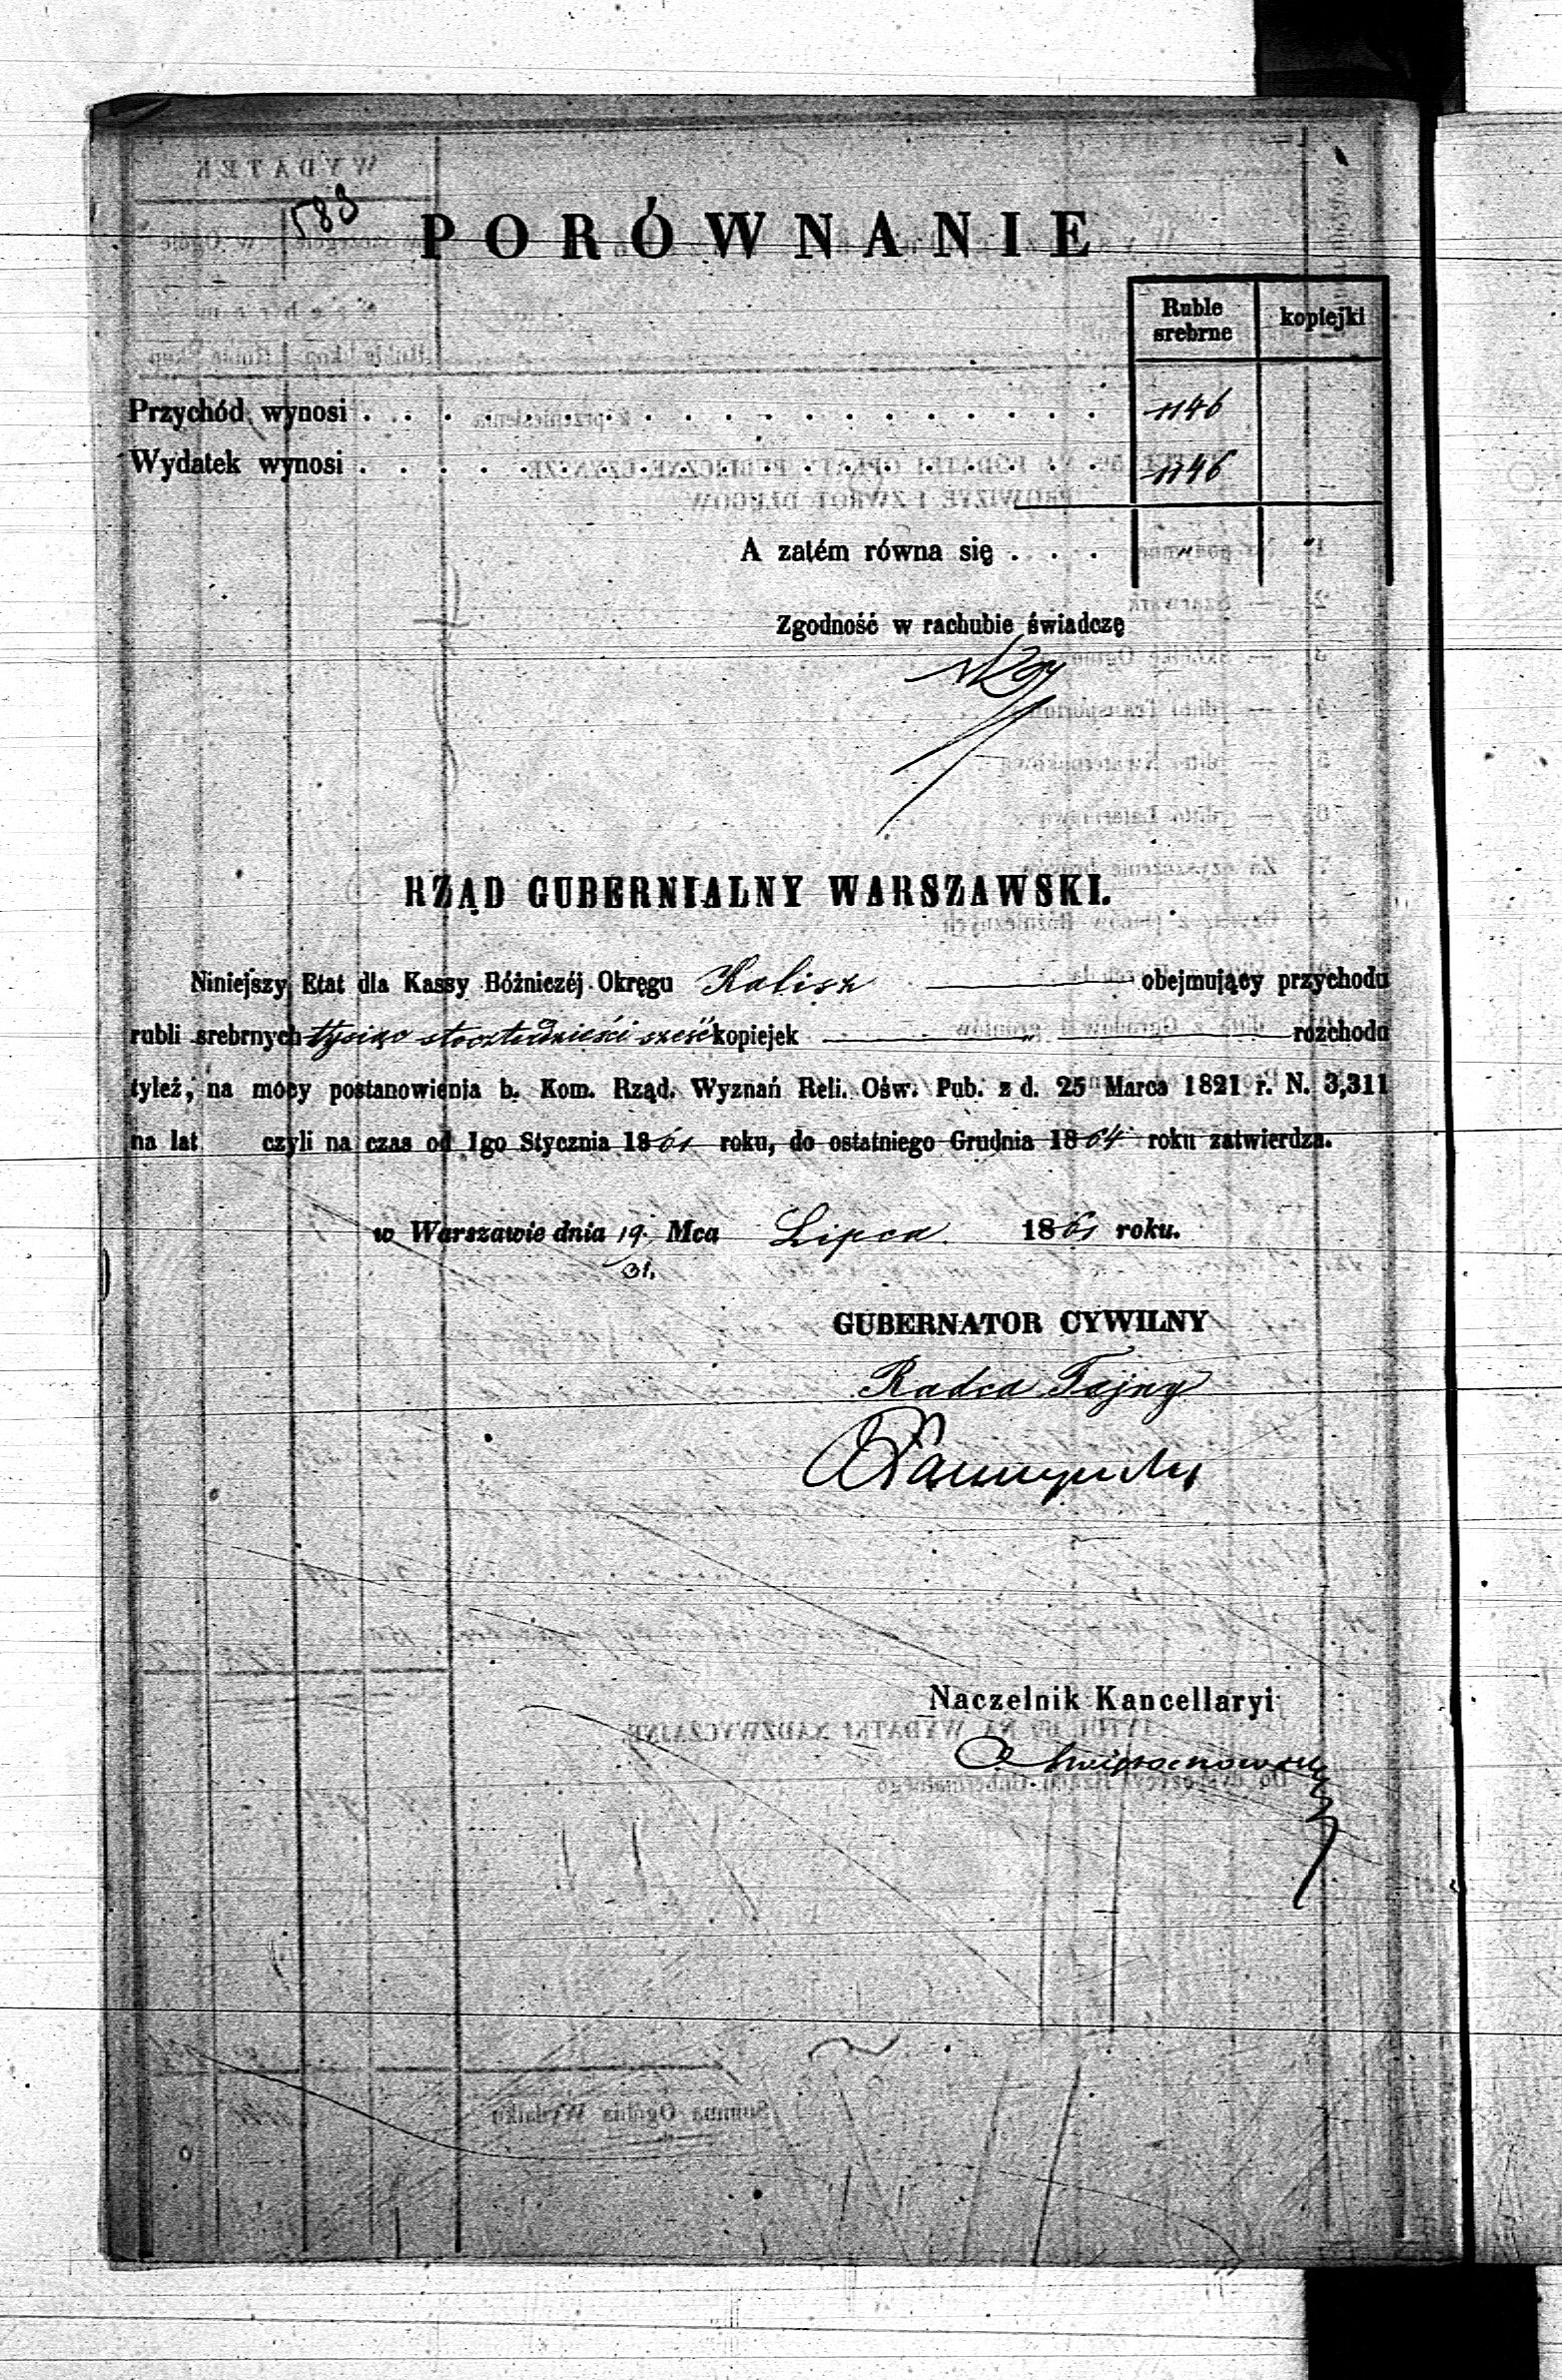 583
PORÓWNANIE
Ruble srebrne kopiejki
Przychód wynosi . . . . . . . . . . . . . . . . . . . 1146
Wydatek wynosi . . . . . . . . . . . . . . . . . . . 1146
A zatém równa się . . .
Zgodność w rachubie świadczę
RZĄD GUBERNIALNY WARSZAWSKI.
Niniejszy Etat dla Kassy Bóżniczéj Okręgu Kalisz obejmujący przychodu
rubli srebrnych tysiąc stoczterdzieści sześć kopiejek „ rozchodu
tyleż, na mocy postanowienia b. Kom. Rząd. Wyznań Reli. Ośw. Pub. z d. 25 Marca 1821 r. N. 3,311
na lat czyli na czas od 1go Stycznia 1861 roku, do ostatniego Grudnia 1864 roku zatwierdza.
w Warszawie dnia 19/31. Mca Lipca 1861 roku.
GUBERNATOR CYWILNY
Radca Tajny
Naczelnik Kancellaryi